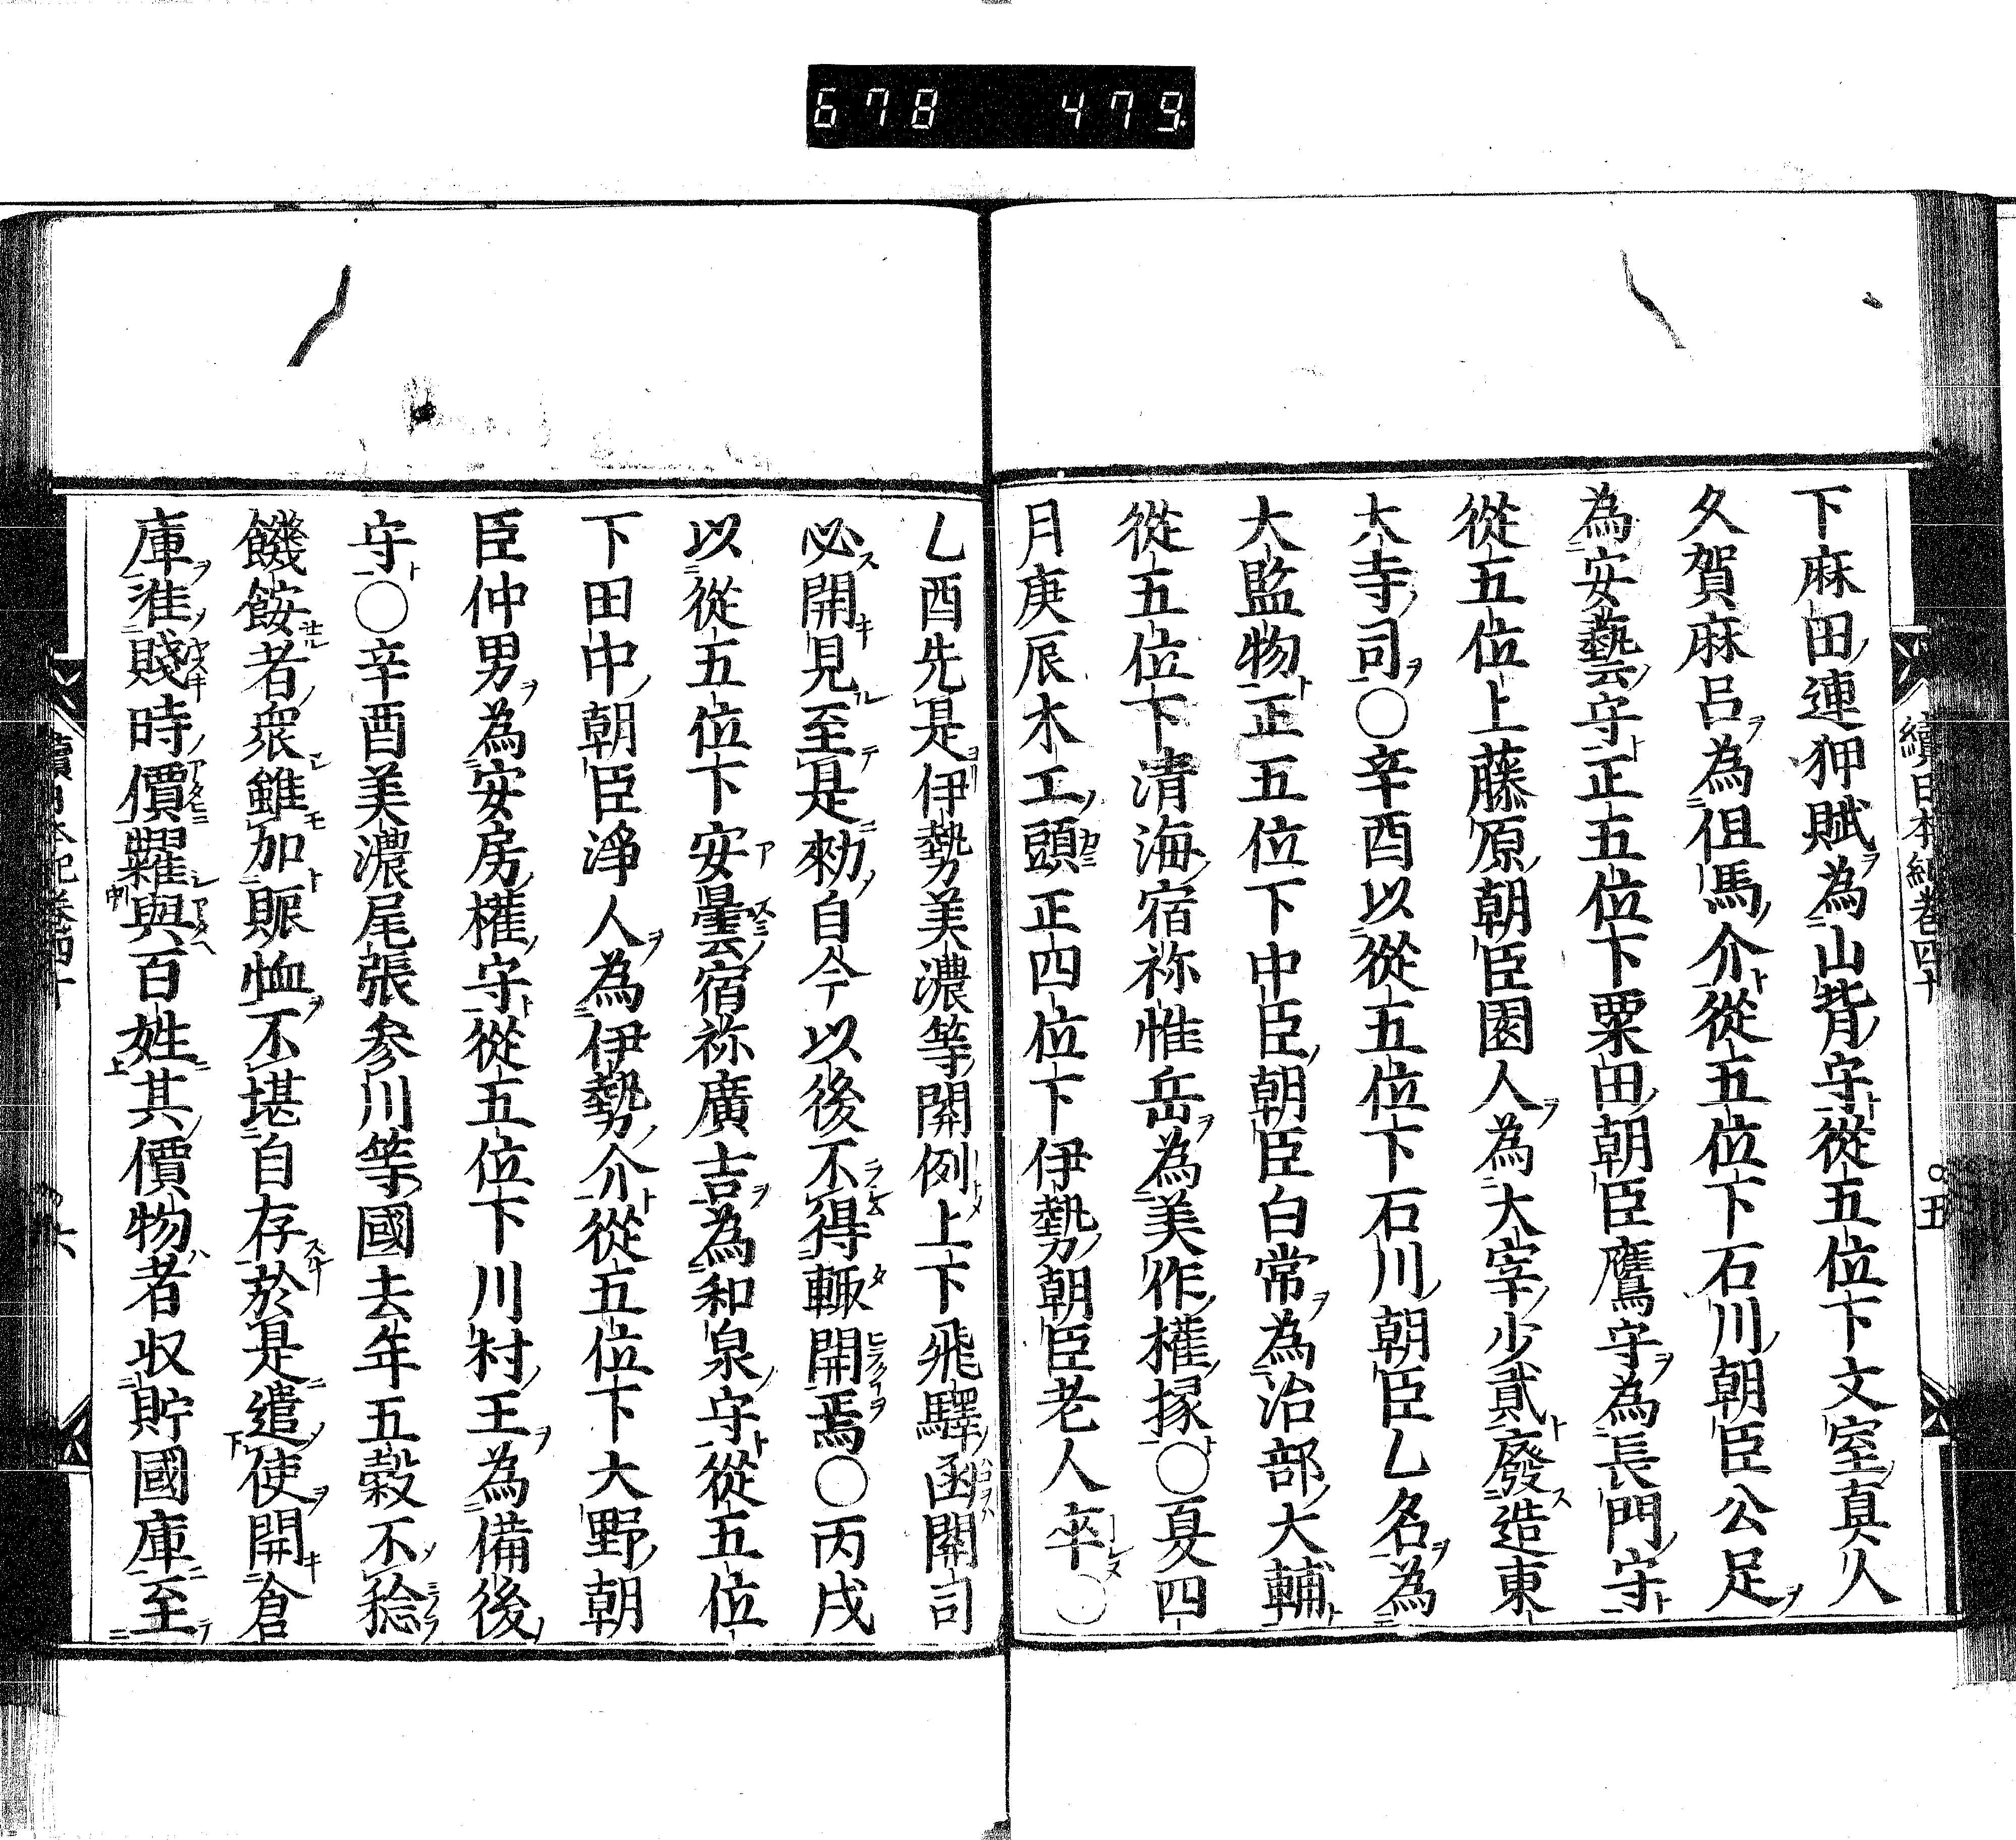 678 479
續日本紀卷四十 五
下麻田連狎賦為山背守從五位下文室真人
久賀麻呂為但馬介從五位下石川朝臣公足
為安藝守正五位下粟田朝臣鷹守為長門守
從五位上藤原朝臣園人為大宰少貳廢造東
大寺司○辛酉以從五位下石川朝臣乙名為
大監物正五位下中臣朝臣白常為治部大輔
從五位下清海宿祢惟岳為美作權掾○夏四
月庚辰木工頭正四位下伊勢朝臣老人卒○
乙酉先是伊勢美濃等關例上下飛驛函關司
必開見至是勑自今以後不得輙開焉○丙戌
以從五位下安曇宿祢廣吉為和泉守從五位
下田中朝臣淨人為伊勢介從五位下大野朝
臣仲男為安房權守從五位下川村王為備後
守○辛酉美濃尾張參川等國去年五穀不稔
饑餒者衆雖加賑恤不堪自存於是遣使開倉
庫准賤時價糶與百姓其價物者収貯國庫至
續日本紀卷四十 六